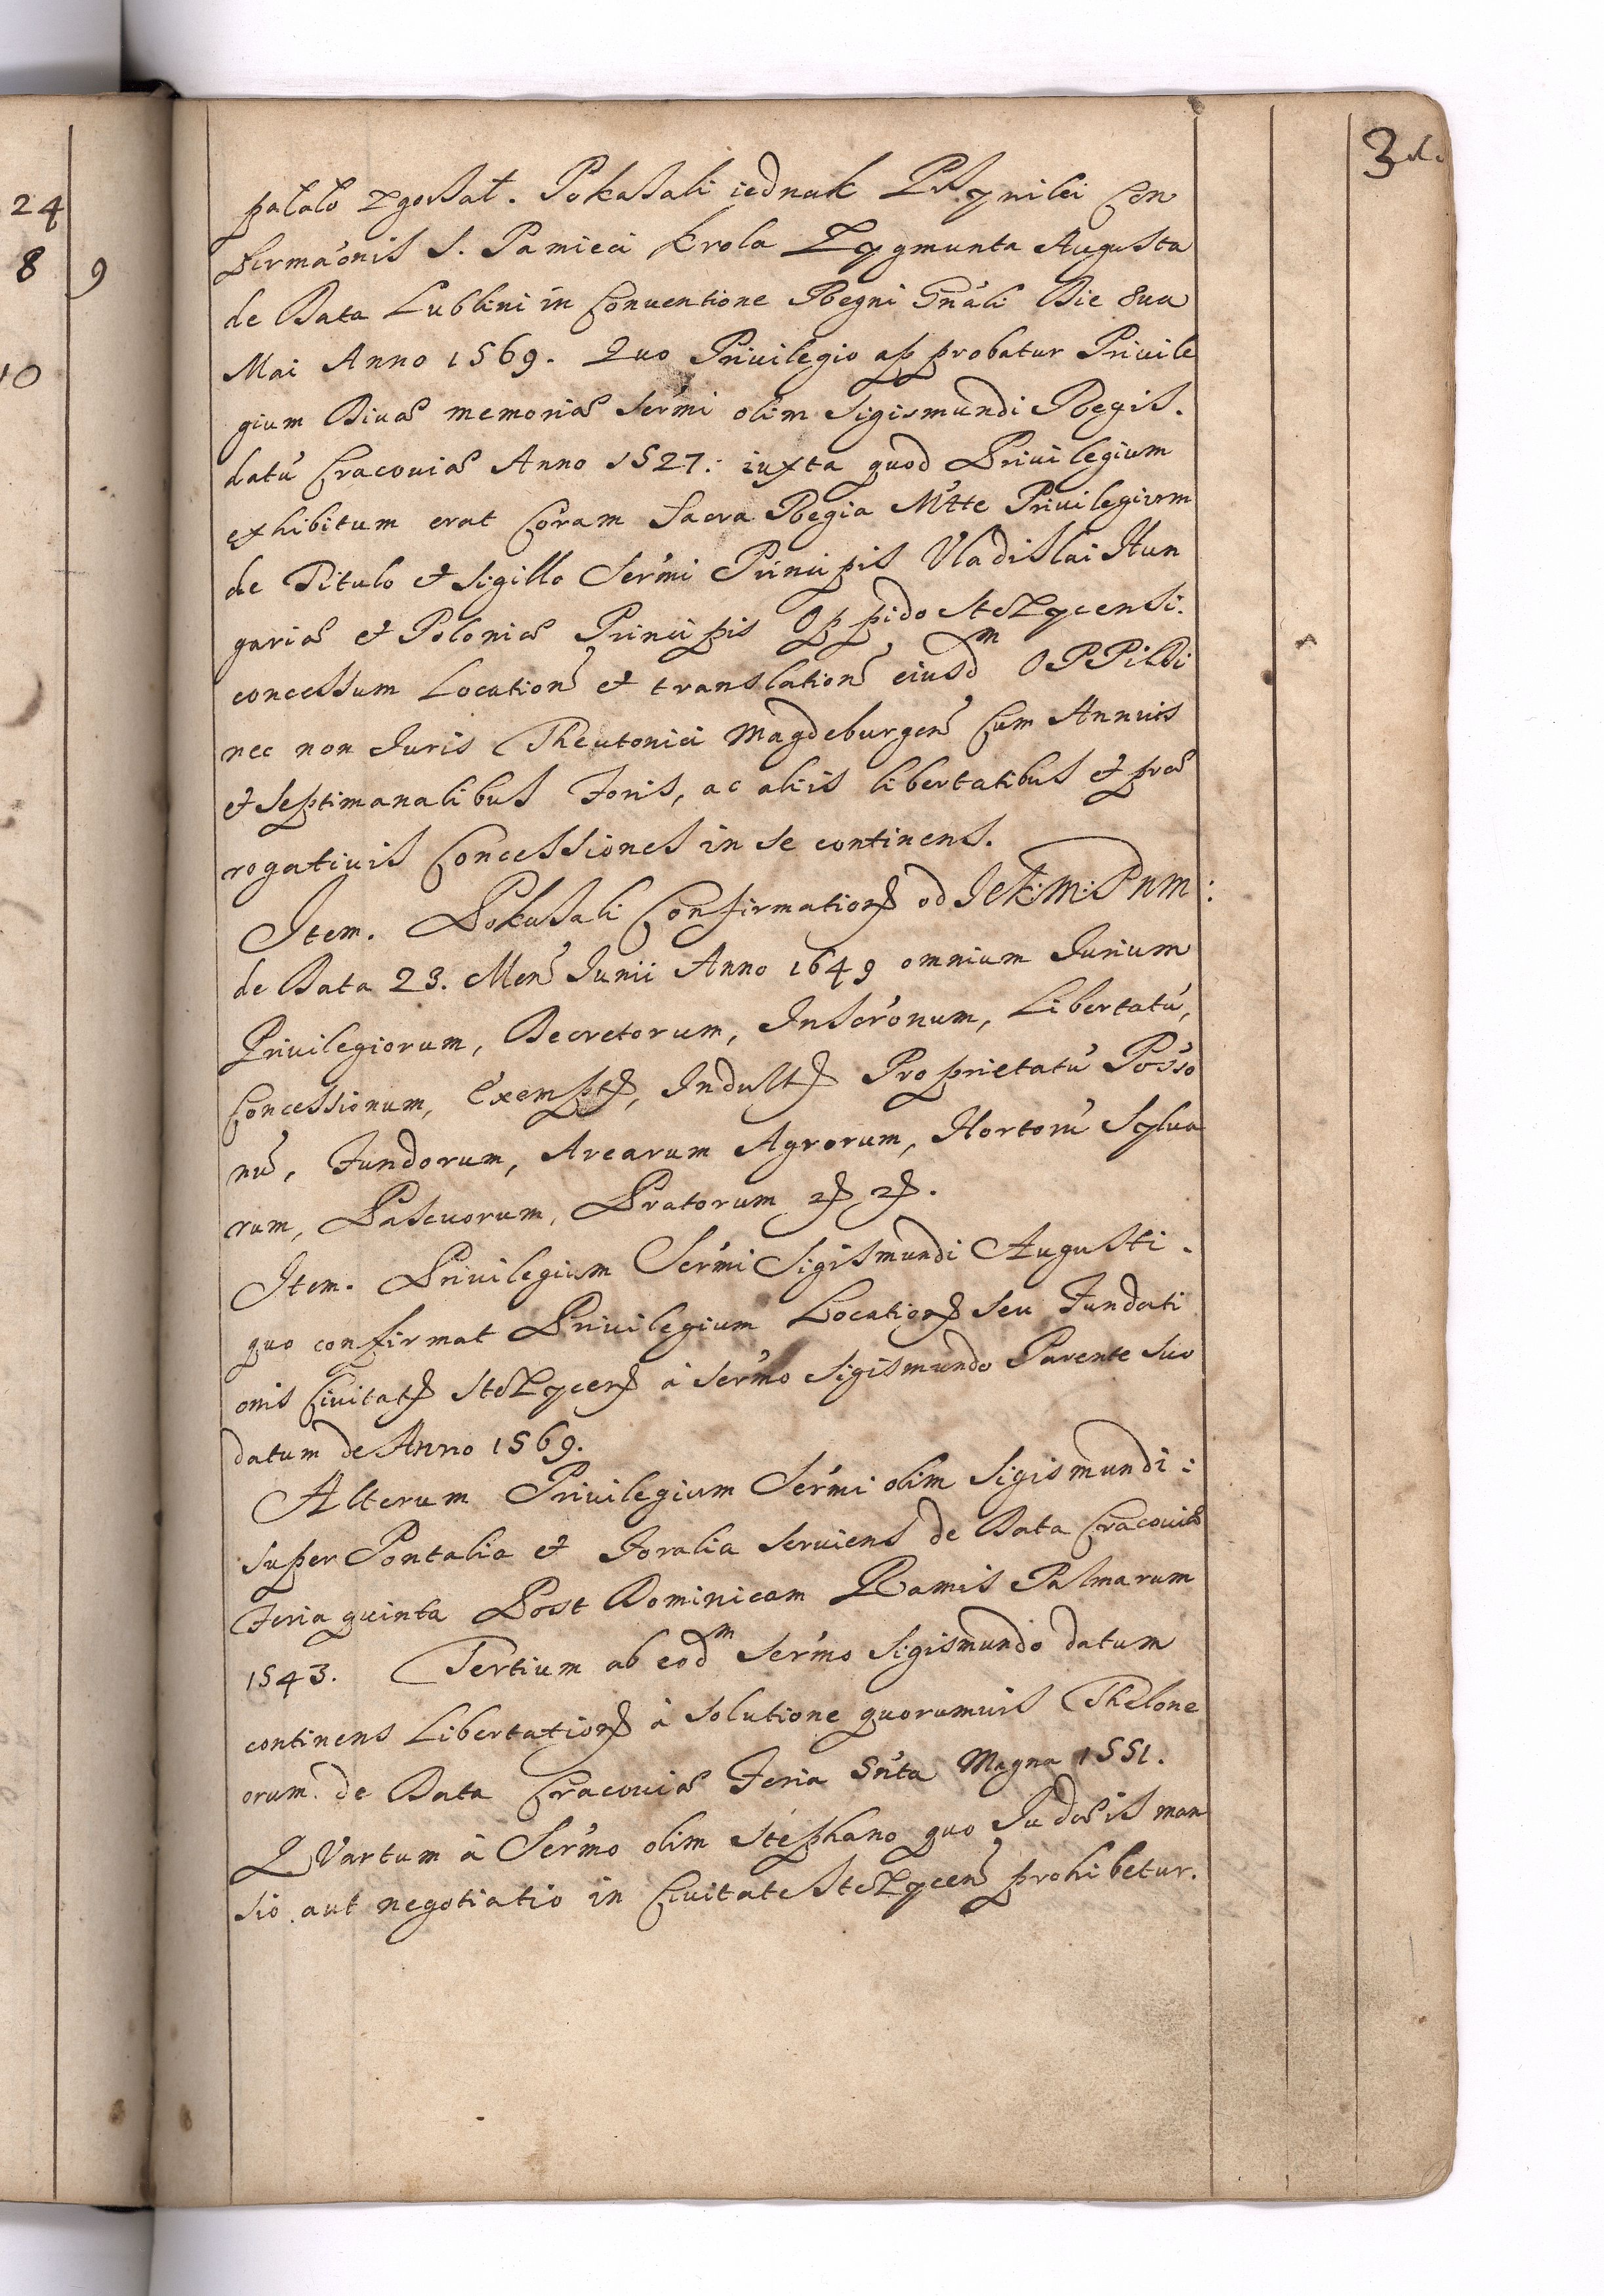 3
24
8 9
10
pałało zgorzał. Pokazali iednak Przywilei Con
firmaōnis S. Pamieci Krola Zygmunta Augusta
de Data Lublini in Conventione Regni Gnāli Die 8va
Mai Anno 1569. Quo Privilegio approbatur Privile
gium Divæ memoriæ Sermi olim Sigismundi Regis.
datū Cracoviæ Anno 1527: iuxta quod Privilegium
exhibitum erat Coram Sacra Regia Mtte Privilegium
de Titulo et Sigillo Sermi Principis Vladislai Hun
gariæ et Poloniæ Principis Oppido Stezycensi.
concessum Location et translation eiusdm OPPiDi
nec non Juris Theutonici Magdeburgen Cum Annuis
et Septimanalibus Foris, ac aliis libertatibus et præ
rogativis Concessiones in se continens.
Item. Pokazali Confirmation od JeK:M:PnM:
de Data 23. Men Junii Anno 1649 omnium Jurium
Privilegiorum, Decretorum, Inscronum, Libertatū,
Concessionum, Exempt, Indult Proprietatū Posso
nū, Fundorum, Arearum Agrorum, Hortorū Sylva
rum, Pascuorum, Pratorum
Item. Privilegium Sermi Sigismundi Augusti.
quo confirmat Privilegium Location seu Fundati
onis Civitat Stezycen à Sermo Sigismundo Parente suo
datum de Anno 1569.
Alterum Privilegium Sermi olim Sigismundi:
super Pontalia et Foralia serviens de Data Cracoviæ
Feria quinta Post Dominicam Ramis Palmarum
1543. Tertium ab eodm Sermo Sigismundo datum
continens Libertation à solutione quorumvis Thelone
orum. de Data Cracoviæ Feria 5nta Magna 1551.
QVartum à Sermo olim Stephano quo Judæis man
sio aut negotiatio in Civitate Stezycen prohibetur.